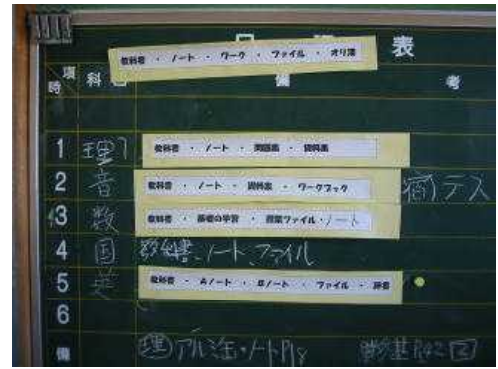 表
教科書 ・ ノート ・ ワーク ・ ファイル ・ オリ薄
時 項 科 備 考
1 理1 教科書 ・ ノート ・ 問題集 ・ 資料集
2 音 教科書 ・ ノート ・ 資料集 ・ ワークブック テス
3 数 教科書 ・ 基礎の学習 ・ 授業ファイル ・ ノート
4 国 教科書、ノート、ファイル
5 英 教科書 ・ Aノート ・ Bノート ・ ファイル ・ 辞書
6
備 理